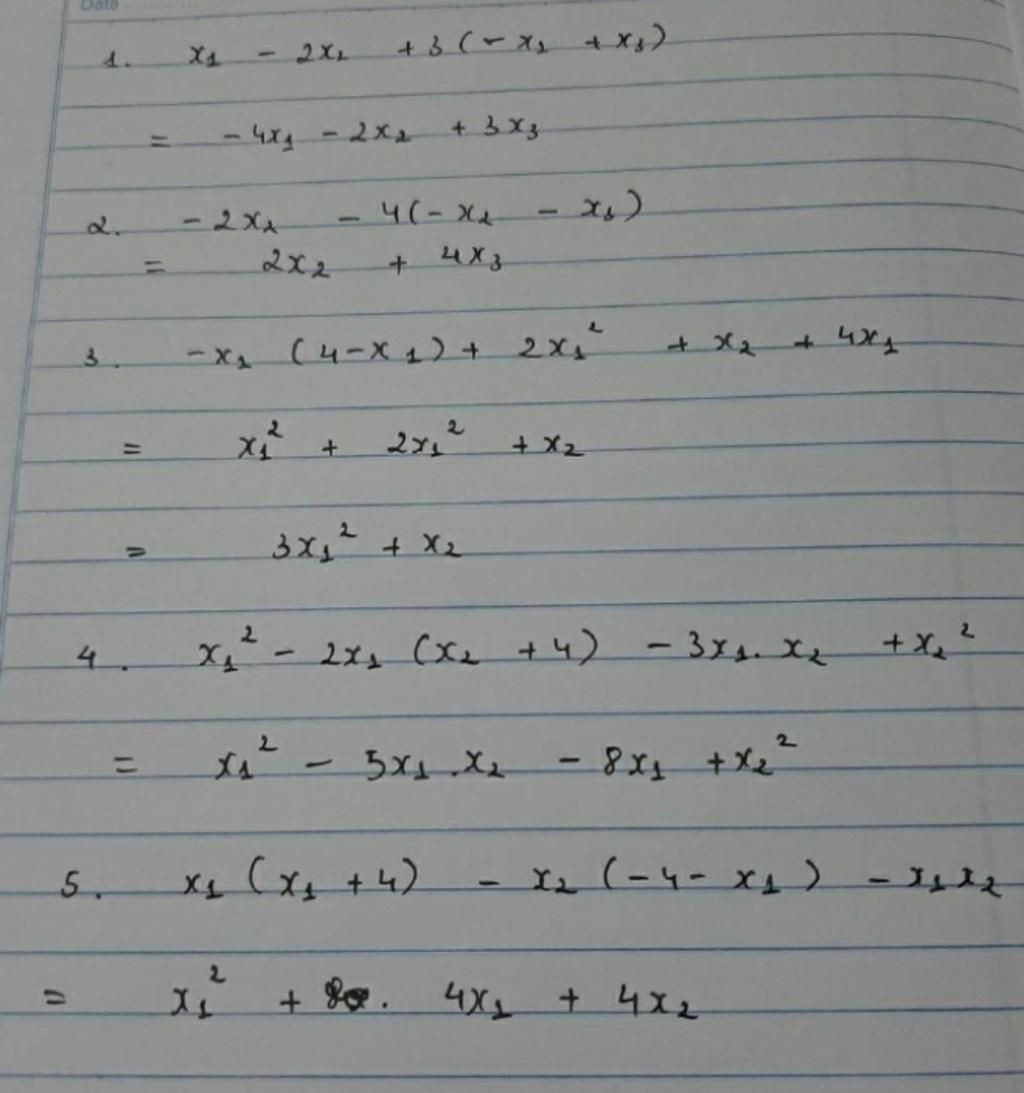 Date
1. x₁ - 2x₂ + 3(-x₁ + x₃)
= -4x₁ - 2x₂ + 3x₃
2. -2x₂ - 4(-x₂ - x₃)
= 2x₂ + 4x₃
3. -x₁ (4-x₁) + 2x₁² + x₂ + 4x₁
= x₁² + 2x₁² + x₂
= 3x₁² + x₂
4. x₁² - 2x₁ (x₂ + 4) - 3x₁. x₂ + x₂²
= x₁² - 5x₁.x₂ - 8x₁ + x₂²
5. x₁ (x₁ + 4) - x₂ (-4 - x₁) - x₁x₂
= x₁² + 4x₁ + 4x₂